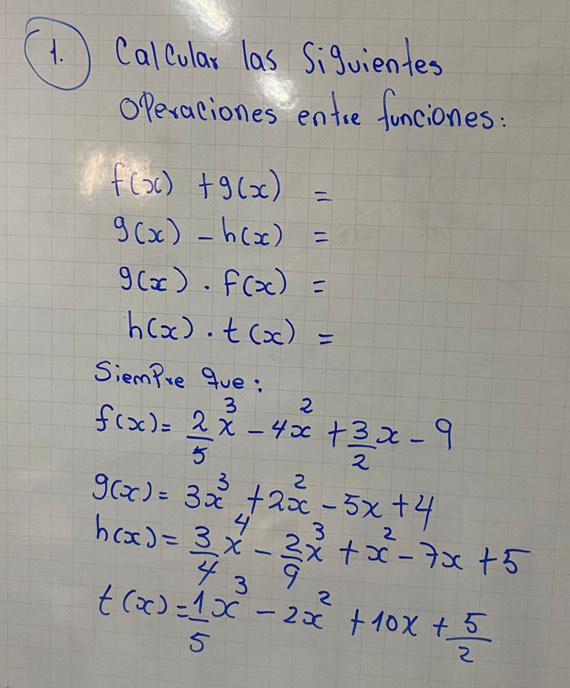 1. Calcular las Siguientes
Operaciones entre funciones:
f(x) + g(x) =
g(x) - h(x) =
g(x) . f(x) =
h(x) . t(x) =
Siempre que:
f(x) = 2/5 x³ - 4x² + 3/2 x - 9
g(x) = 3x³ + 2x² - 5x + 4
h(x) = 3/4 x⁴ - 2/9 x³ + x² - 7x + 5
t(x) = 1/5 x³ - 2x² + 10x + 5/2